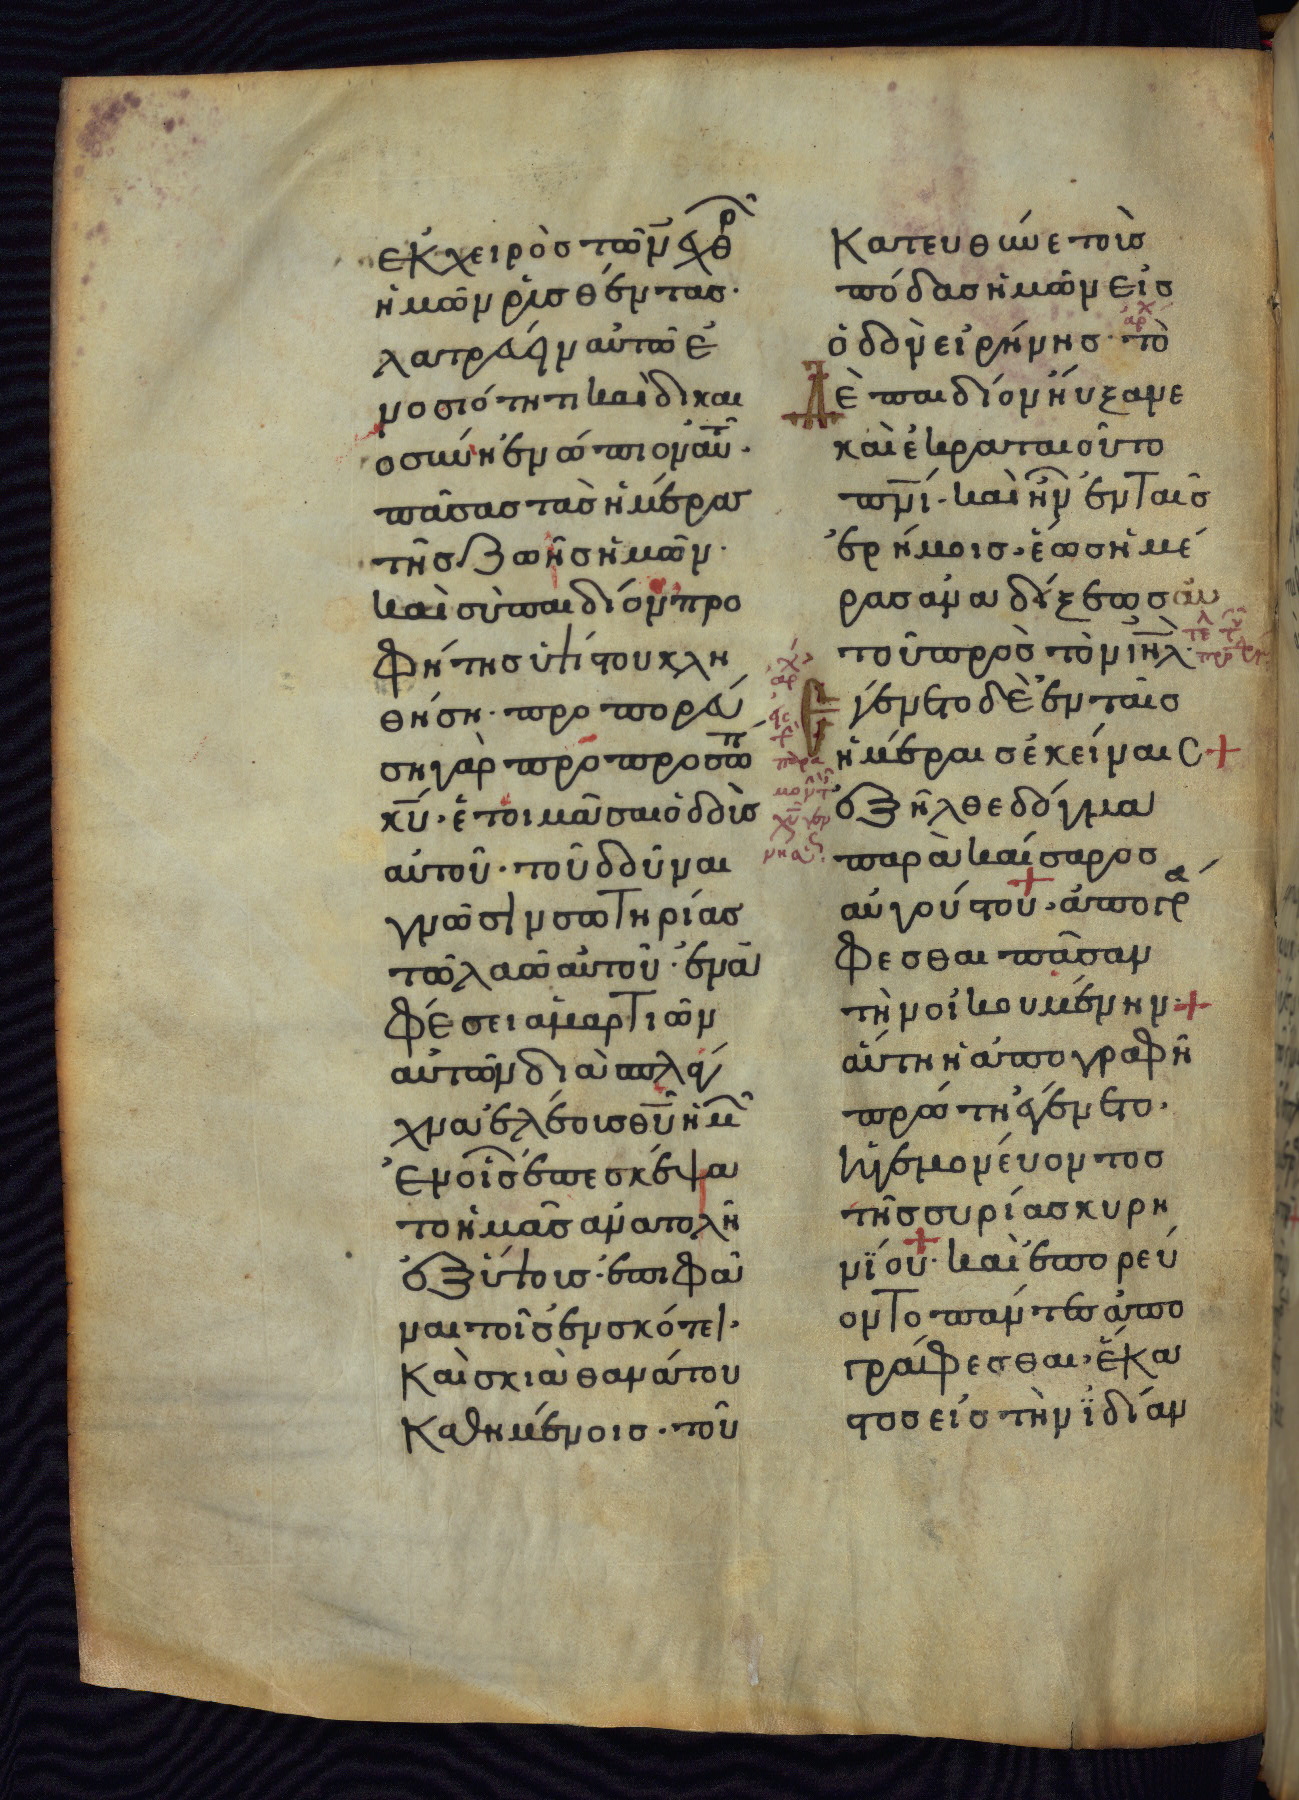 ἐκ χειρὸς τῶν ἐχθρ
ἡμῶν ῥυσθέντας·
λατρεύειν αὐτῶ ἐ
ν ὁσιότητι καὶ δικαι
οσύνη ἐνώπιον αὐτ·
πάσας τὰς ἡμέρας
τῆς ζωῆς ἡμῶν·
καὶ σὺ παιδίον προ
φήτης ὑψίστου κλη
θήση· προπορεύ
ση γὰρ πρὸ προσώπ
κυ· ἑτοιμάσαι ὁδοὺς
αὐτοῦ· τοῦ δοῦναι
γνῶσιν σωτηρίας
τῶ λαῶ αὐτοῦ· ἐν ἀ
φέσει ἁμαρτιῶν
αὐτῶν διὰ σπλά
χνα ἐλέους θυ ἡμ
ἐν οἷς ἐπεσκέψα
το ἡμᾶς ἀνατολὴ
ἐξ ὕψους· ἐπιφᾶ
ναι τοῖς ἐν σκότει·
καὶ σκιᾶ θανάτου
καθημένοις· τοῦ
κατευθύνε τοὺς
πόδας ἡμῶν εἰς
ὁδὸν εἰρήνης· τὸ
ἀρχ
δὲ παιδίον ηὔξανε
καὶ ἐκραταιοῦτο
πνι· καὶ ἦν ἐν ταῖς
ἐρήμοις· ἕως ἡμέ
ρας ἀναδείξεως αὐ
τοῦ πρὸς τὸν ιηλ·
ἐγένετο δὲ ἐν ταῖς
ἡμέραις ἐκείναις +
ἐξῆλθε δόγμα
παρὰ καίσαρος
αὐγούστου· ἀπογρά
φεσθαι πᾶσαν
τὴν οἰκουμένην· +
αὕτη ἡ ἀπογραφὴ
πρώτη ἐγένετο·
ἡγεμονεύοντος
τῆς συρίας κυρη
νίου· καὶ ἐπορεύ
οντο πάντες ἀπο
γράφεσθαι· ἕκα
στος εἰς τὴν ἰδίαν